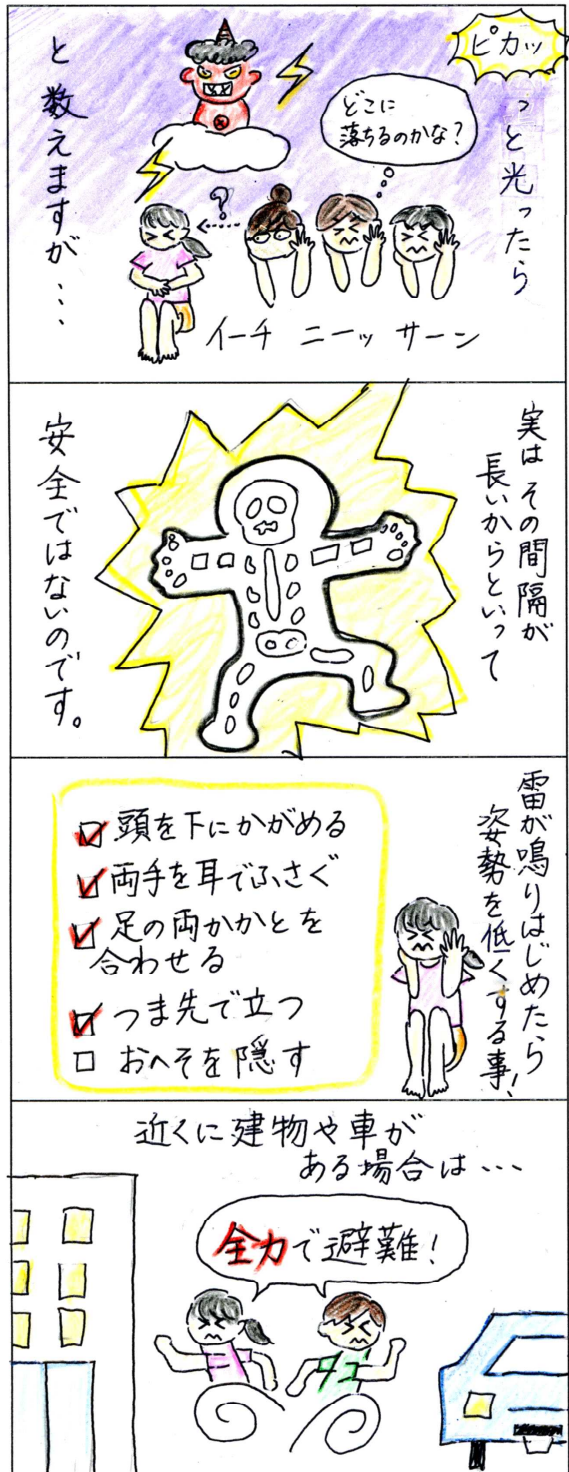 ピカッ
っと光ったら
どこに
落ちるのかな?
?
イーチ ニーッ サーン
と数えますが・・・
実はその間隔が
長いからといって
安全ではないのです。
雷が鳴りはじめたら
姿勢を低くする事!
頭を下にかがめる
両手を耳でふさぐ
足の両かかとを
合わせる
つま先で立つ
おへそを隠す
近くに建物や車が
ある場合は・・・
全力で避難!